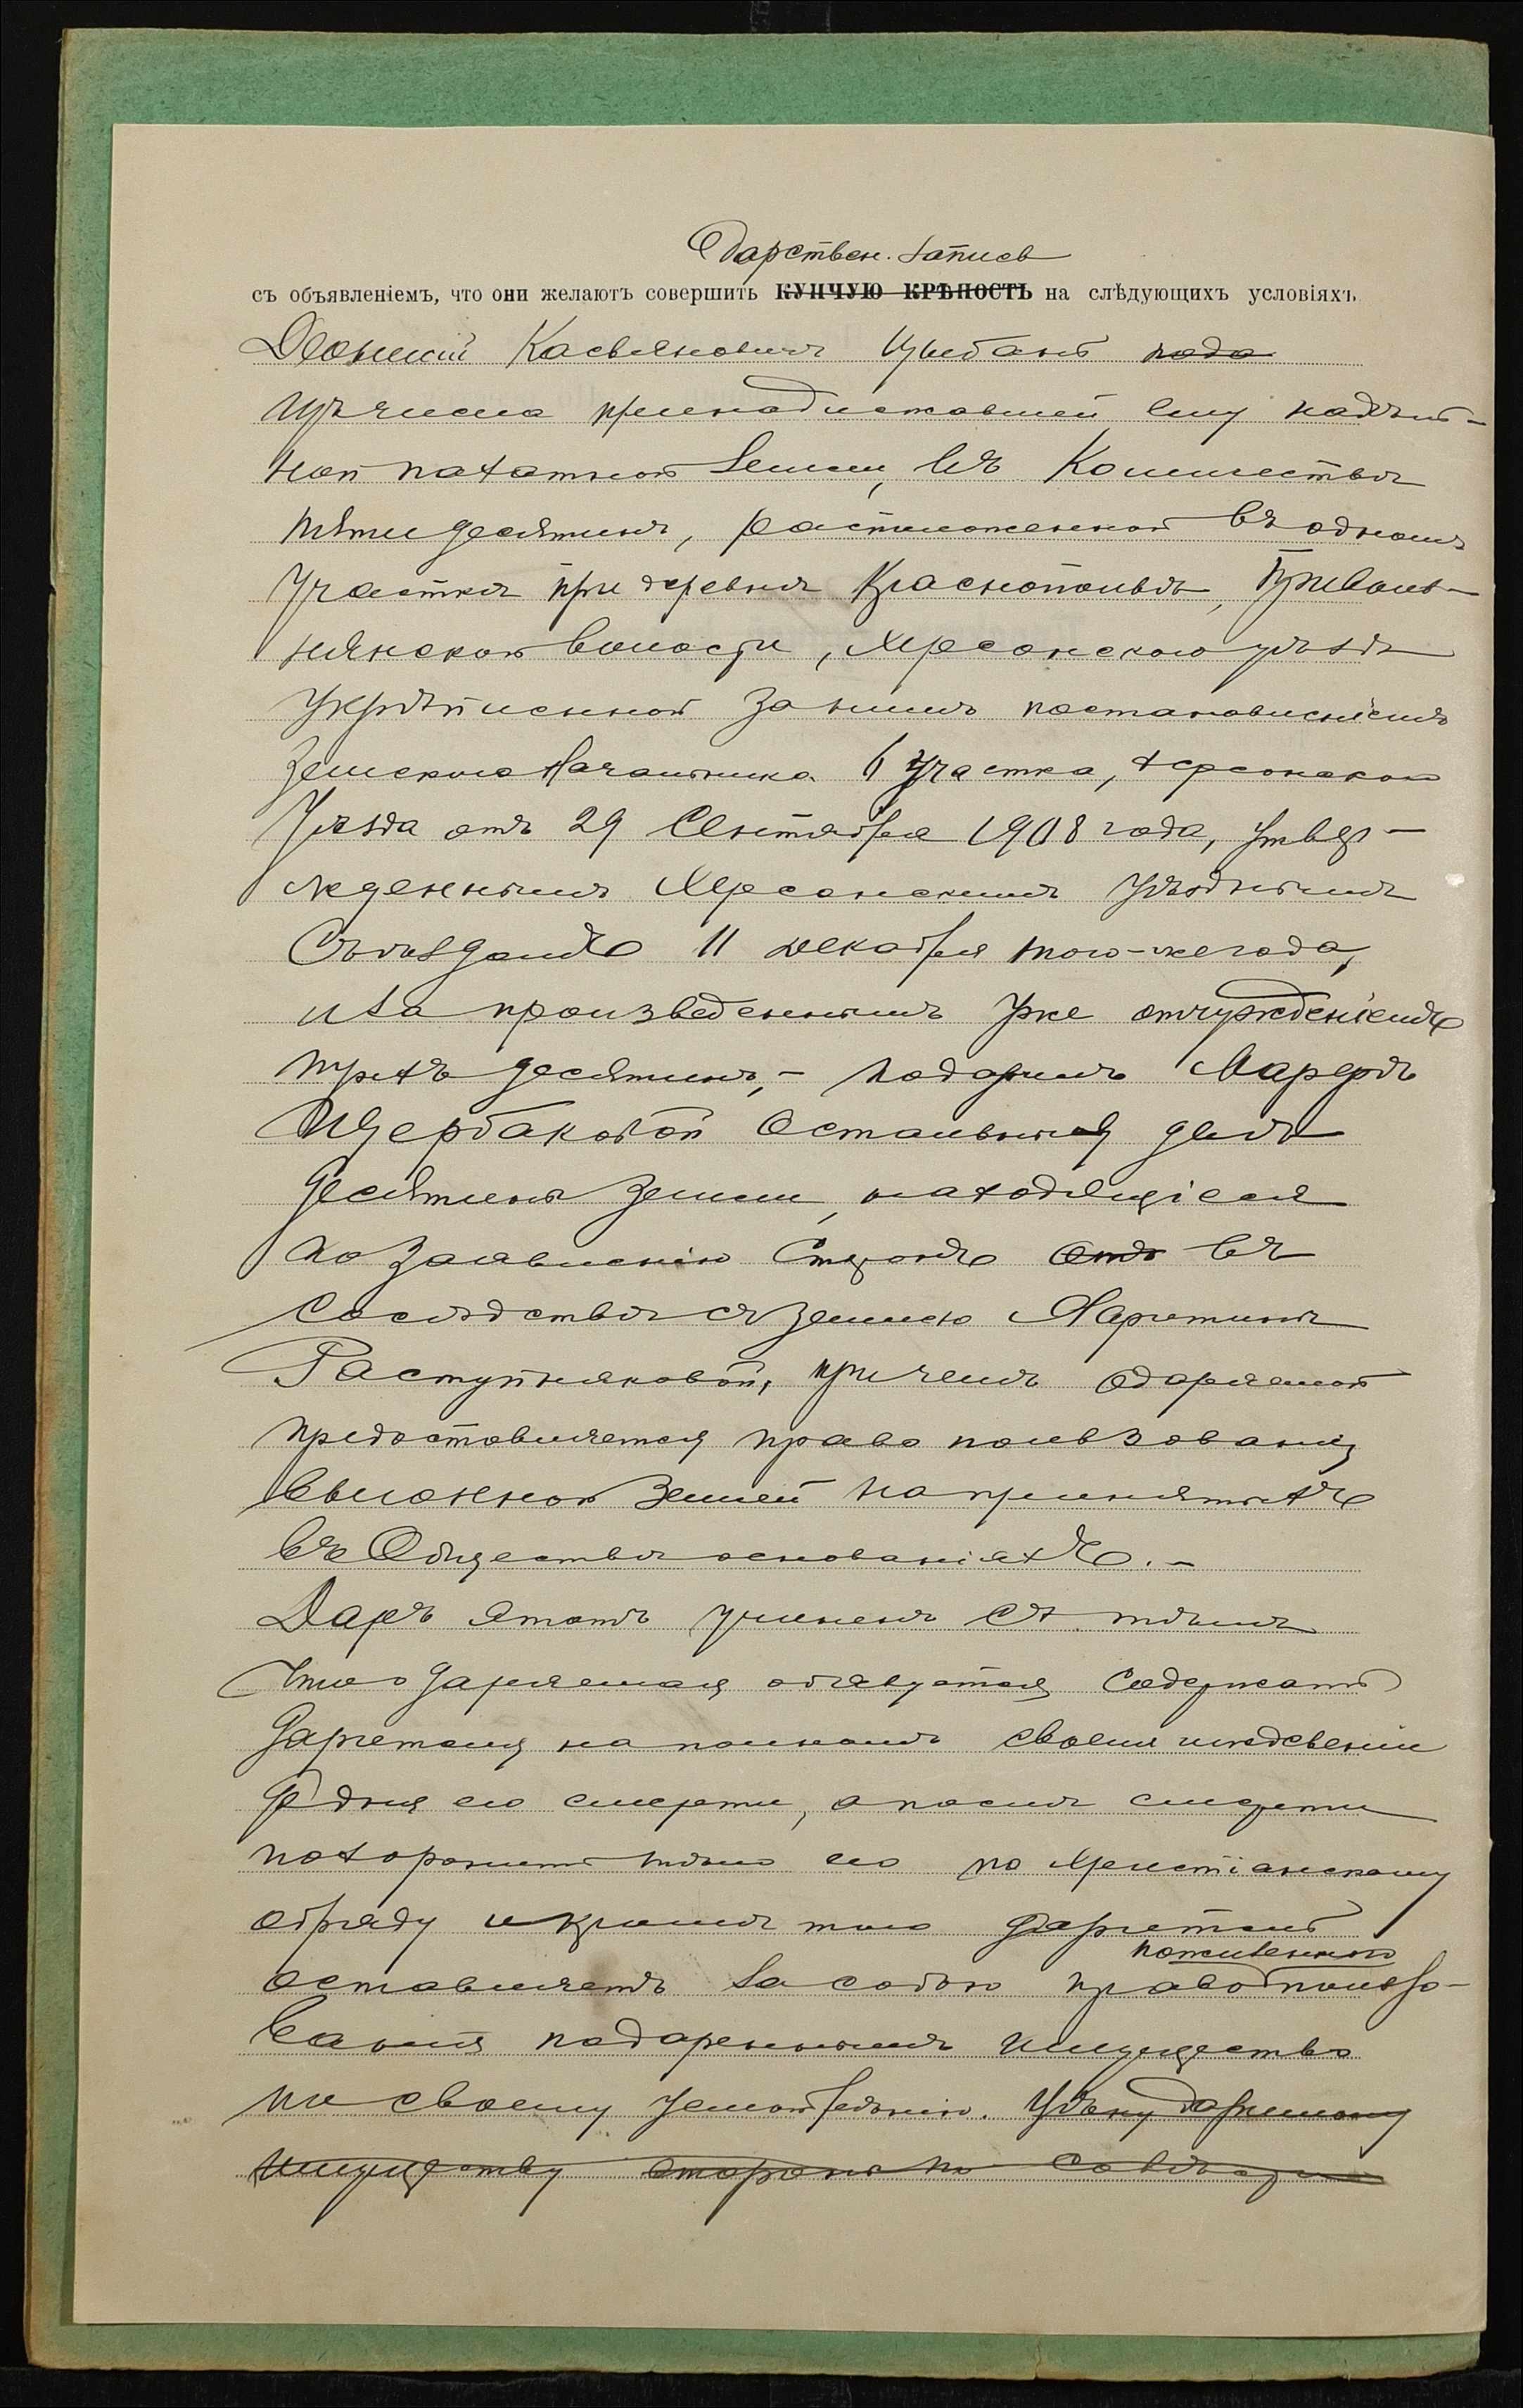 Дарствен. запись
съ объявленіемъ, что они желаютъ совершить КУПЧУЮ КРѢПОСТЬ на слѣдующихъ условіяхъ
Касьяновичъ Цыбань
принадлежавшей ему надѣль-
ной пахатной земли, въ количествѣ
пяти десятинъ, расположенной въ одномъ
участкѣ при деревнѣ Краснопольѣ, Приволь-
нянской волости, Херсонскаго уѣзда
укрѣпленной за нимъ постановленіемъ
Земскаго Начальника 6 участка, Херсонскаго
Уѣзда отъ 29 Сентября 1908 года, утвер-
жденнымъ Херсонскимъ Уѣзднымъ
Съѣздомъ 11 декабря того-же года,
и за произведеннымъ уже отчужденіемъ
трехъ десятинъ, - подарилъ Марфѣ
Щербаковой остальныя двѣ
десятины земли, находящіеся
по заявленію сторонъ отъ въ
сосѣдствѣ съ землею
Раступняковой, причемъ одаряемой
предоставляется право пользованія
выгонной землей на принятыхъ
въ Обществѣ основаніяхъ. -
Даръ этотъ учиненъ съ тѣмъ
что одаряемая обязуется содержать
дарителя на полномъ своемъ иждивеніи
до дня его смерти, а послѣ смерти
похоронить тѣло его по христіанскому
обряду и кромѣ того даритель
пожизненнаго
оставляетъ за собою право пользо-
ванія подареннымъ имущество
по своему усмотрѣнію. Цѣну даримому
имуществу стороны по совѣсти